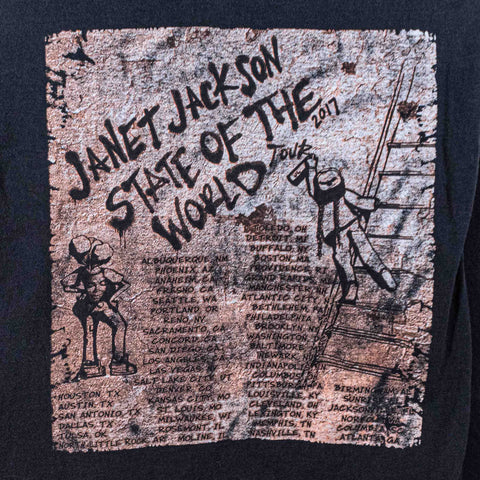 JANET JACKSON
STATE OF THE
WORLD
TOUR
2017
HOUSTON, TX
AUSTIN, TX
SAN ANTONIO, TX
DALLAS, TX
TULSA, OK
NORTH LITTLE ROCK, AR
ALBUQUERQUE, NM
PHOENIX, AZ
ANAHEIM, CA
FRESNO, CA
SEATTLE, WA
PORTLAND, OR
RENO, NV
SACRAMENTO, CA
CONCORD, CA
SAN DIEGO, CA
LOS ANGELES, CA
LAS VEGAS,
SALT LAKE CITY, UT
DENVER, CO
KANSAS CITY, MO
ST. LOUIS, MO
MILWAUKEE, WI
ROSEMONT, IL
MOLINE, IL
TOLEDO, OH
DETROIT, MI
BUFFALO, NY
BOSTON, MA
PROVIDENCE, RI
GRAND RAPIDS, MI
MANCHESTER, NH
ATLANTIC CITY,
BETHLEHEM, PA
PHILADELPHIA,
BROOKLYN, NY
WASHINGTON,
BALTIMORE,
NEWARK, NJ
INDIANAPOLIS, IN
COLUMBUS,
PITTSBURGH, PA
LOUISVILLE, KY
CLEVELAND, OH
LEXINGTON, KY
MEMPHIS, TN
NASHVILLE, TN
BIRMINGHAM,
SUNRISE,
JACKSON
NORFOLK
COLUMBIA,
ATLANTA, GA